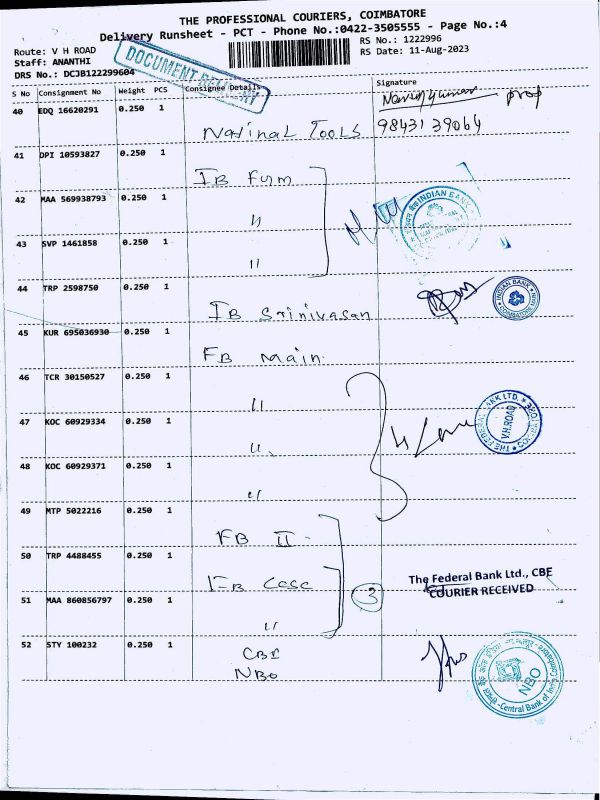 THE PROFESSIONAL COURIERS, COIMBATORE
Delivery Runsheet - PCT - Phone No.:0422-3505555 - Page No.:4
Route: V H ROAD
Staff: ANANTHI
DRS No.: DCJB122299604
RS No.: 1222996
RS Date: 11-Aug-2023
DOCUMENT
S No Consignment No Weight PCS Consignee Details Signature
40 EDQ 16620291 0.250 1
National Tools
Prop
9843139064
41 DPI 10593827 0.250 1
IB Fum
42 MAA 569938793 0.250 1
"
INDIAN BANK
43 SVP 1461858 0.250 1
"
44 TRP 2598750 0.250 1
IB Srinivasan
INDIAN BANK
COIMBATORE
45 KUR 695036930 0.250 1
FB Main.
46 TCR 30150527 0.250 1
"
47 KOC 60929334 0.250 1
"
THE FEDERAL BANK LTD.
V.H.ROAD
48 KOC 60929371 0.250 1
"
49 MTP 5022216 0.250 1
FB II
50 TRP 4488455 0.250 1
3
The Federal Bank Ltd., CBE
COURIER RECEIVED
51 MAA 860856797 0.250 1
"
52 STY 100232 0.250 1
CBI
NBO
NBO
Central Bank of India
Coimbatore